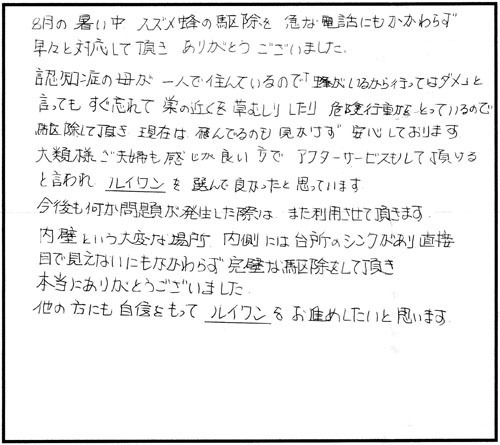 8月の暑い中 スズメ蜂の駆除を 急な電話にもかかわらず
早々と対応して頂き ありがとうございました.
認知症の母が 一人で住んでいるので「蜂がいるから行ってはダメ」と
言っても すぐ忘れて 巣の近くを草むしりしたり 危険行動を とっているので
駆除して頂き 現在は 飛んでるのも 見かけず 安心しております
大類様ご夫婦も感じが良い方で アフターサービスもして頂ける
と言われ ルイワンを選んで良かったと思っています
今後も何か問題が発生した際は また利用させて頂きます.
内壁という大変な場所 内側には台所のシンクがあり 直接
目で見えないにもかかわらず 完璧な駆除をして頂き
本当にありがとうございました
他の方にも自信をもって ルイワンを お進めしたいと思います.